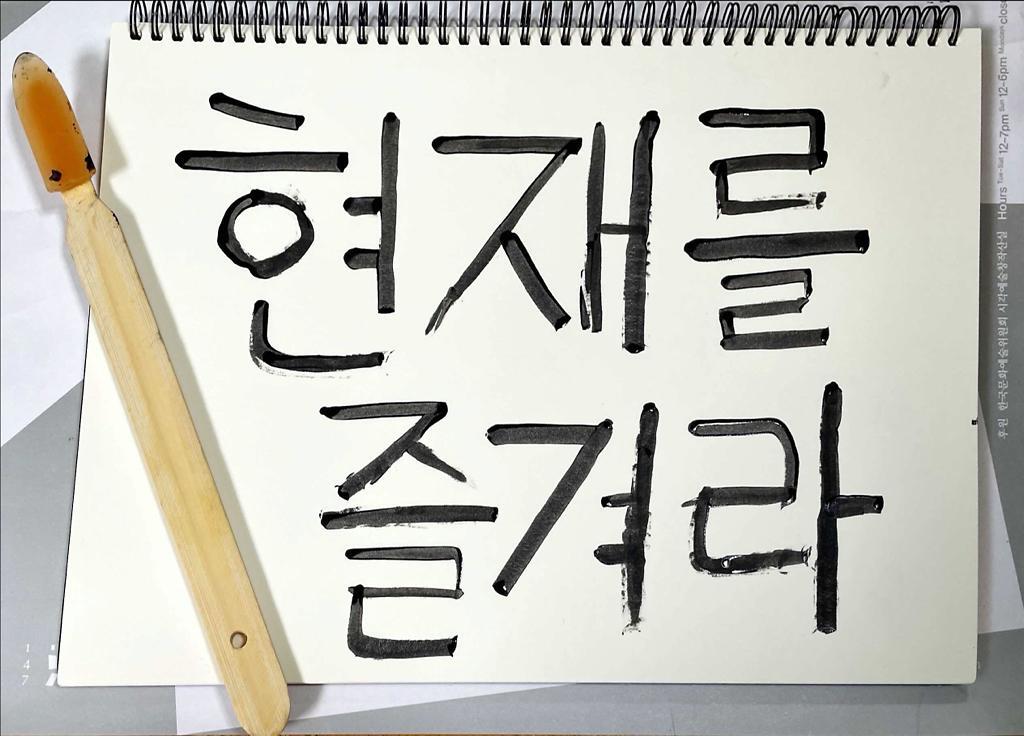 현재를
즐겨라
후원 한국문화예술위원회 시각예술창작산실 Hours Tue-Sat 12-7pm Sun 12-6pm Monday close
1
4
7